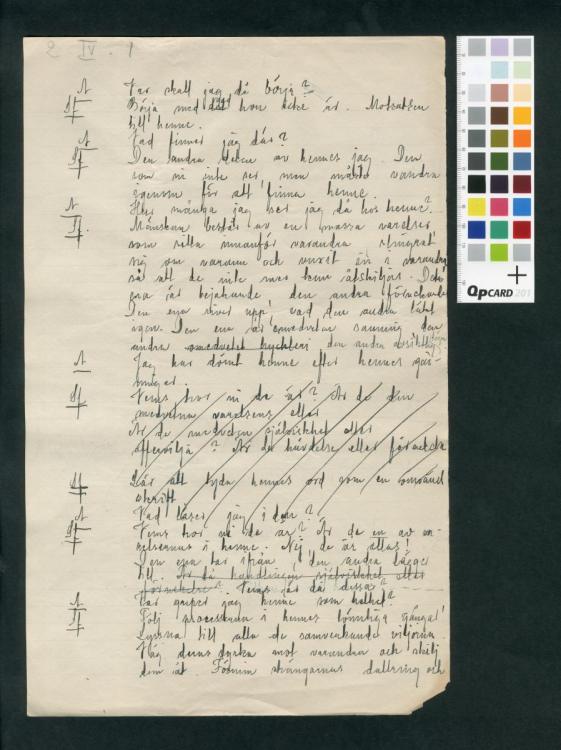 2 IV. 1
A Var skall jag då börja?
H Börja med det hon icke är. Motsatsen
till henne.
A Vad finner jag där?
H Den andra sidan av hennes jag. Den
som ni inte ser man måste vandra
igenom för att finna henne.
A Hur många jag ser jag då hos henne?
H. Människan består av en massa varelser
som sitta innanför varandra
så om varann och vuxit in i varandra
så att de inte mer kunna åtskiljas. Den
ena är bejakande den andra förnekande
Den ena river upp vad den andra
igen. Den ena är omedveten sanning den
andra omedvetet hyckleri den andra
A Jag har dömt henne efter hennes gär-
ningar.
H Vems tror ni de är? Är de den
medvetna varelsens eller
Är de medveten självishet eller
offervilja? Är de hävdelse eller förnekelse
H Lär att tyda hennes ord som en
skrift
A Vad läser jag i dem?
H Vems tror ni de är? Är de en av va-
relsernas i henne. Nej, de är allas!
Den ena tar ifrån den andra lägger
till. Är då handlingen självishet eller
förnekelse? Vems är då dessa?
A Var griper jag henne som helhet?
H Följ processerna i hennes
Lyssna till alla de samverkande viljorna.
Väg deras styrka mot varandra och skilj
dem åt. Förnim strängarnas dallring och
QPCARD 201